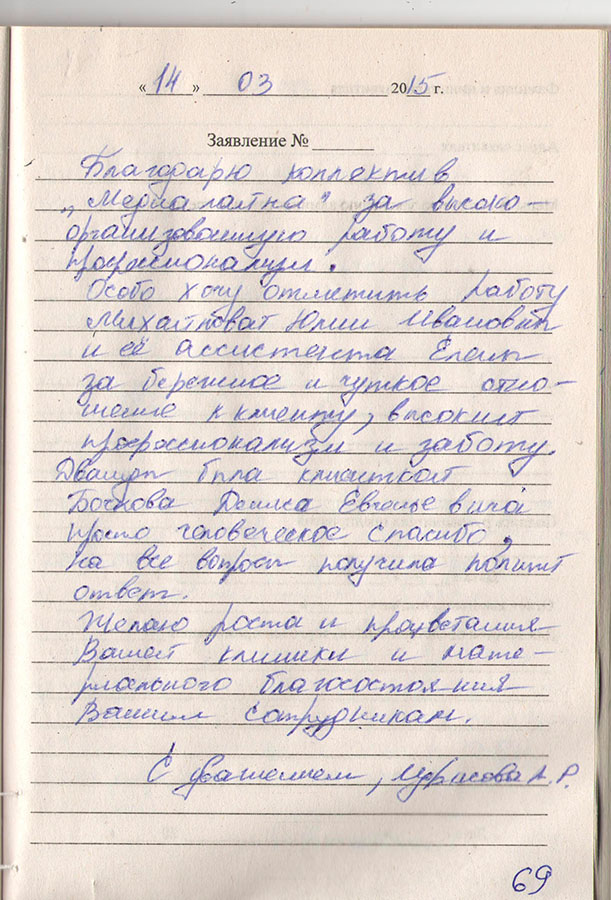 «14» 03 2015 г.
Заявление №
Благодарю коллектив
„Медиалайна" за высоко-
организованную работу и
профессионализм.
Особо хочу отметить работу
Юлии Ивановны
и её ассистента Елены
за бережное и чуткое отно-
шение к клиенту, высокий
профессионализм и заботу.
Дважды была клиенткой
Бочкова Дениса Евгеньевича
просто человеческое спасибо,
на все вопросы получила полный
ответ.
Желаю роста и процветания
Вашей клиники и мате-
риального благосостояния
Вашим сотрудникам.
С уважением, А. Р.
69